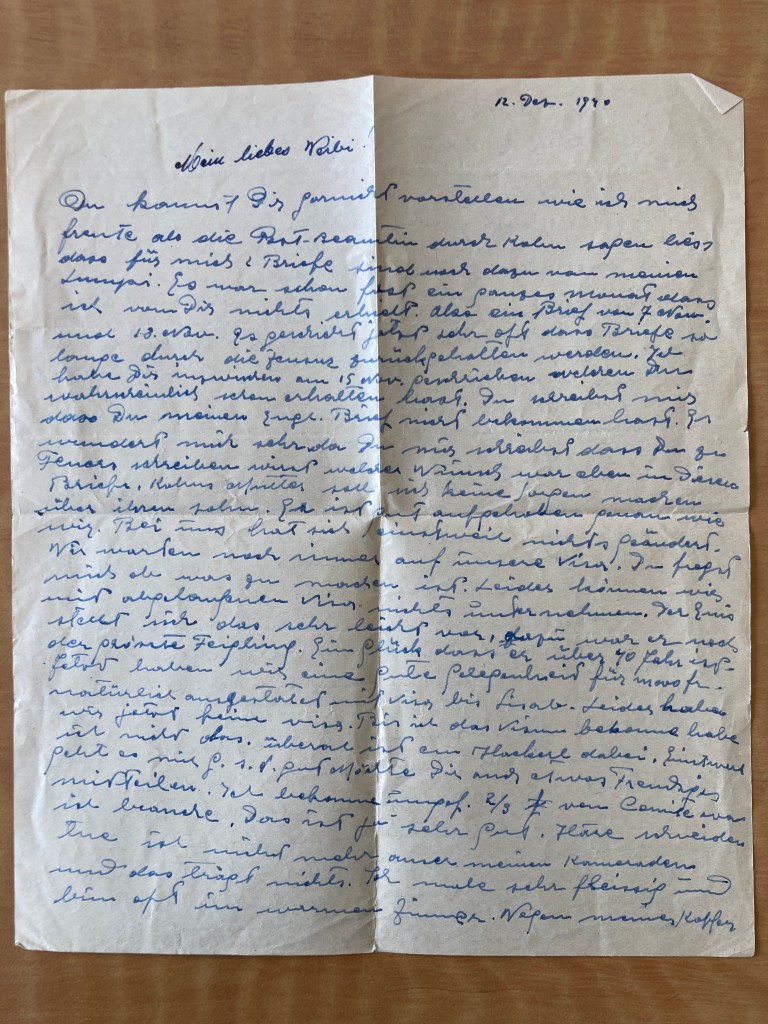 12. Dez. 1940
Mein liebes Weibi!
Du kannst Dir garnicht vorstellen wie ich mich
freute als die Post-Beamtin durch Kohn sagen liess
dass für mich 2 Briefe sind noch dazu von meinen
Lumpi. Es war schon fast ein ganzes Monat dass
ich von Dir nichts erhielt. Also ein Brief von 7 Nov.
und 13. Nov. Es geschieht jetzt sehr oft dass Briefe so
lange durch die Zensur zurückgehalten werden. Ich
habe Dir inzwischen am 15 Nov. geschrieben welchen Du
wahrscheinlich schon erhalten hast. Du schreibst mir
dass Du meinen Engl. Brief nicht bekommen hast. Es
wundert mich sehr da Du mir schreibst dass Du zu
Feuers schreiben wirst welcher Wunsch war eben in diesen
Briefe. Kohns Mutter soll sich keine Sorgen machen
über ihren Sohn. Er ist gut aufgehoben genau wie
wir. Bei uns hat sich einstweil nichts geändert.
Wir warten noch immer auf unsere Visa. Du fragst
mich ob was zu machen ist. Leider können wir
mit abgelaufenen Visa nichts unternehmen. Der
stellt sich das sehr leicht vor, dazu war er noch
der grösste Feigling. Ein Glück dass er über 40 Jahr ist.
Jetzt haben wir eine gute Gelegenheit für
natürlich ausgestatet mit Visa bis Lissab. Leider haben
wir jetzt keine Visa. Bis ich das Visum bekomme habe
ich nicht das. Überal ist ein Hackerl dabei. Einstweil
geht es mir G. s. d. gut. Möchte Dir auch etwas Freudiges
mitteilen. Ich bekomme ungef. 2/3 von Comité was
ich brauche. Das ist ja sehr gut. Haare schneiden
tue ich nicht mehr ausser meinen Kameraden
und das trägt nichts. Ich male sehr fleissig und
bin oft im warmen Zimmer. Wegen meines Koffer